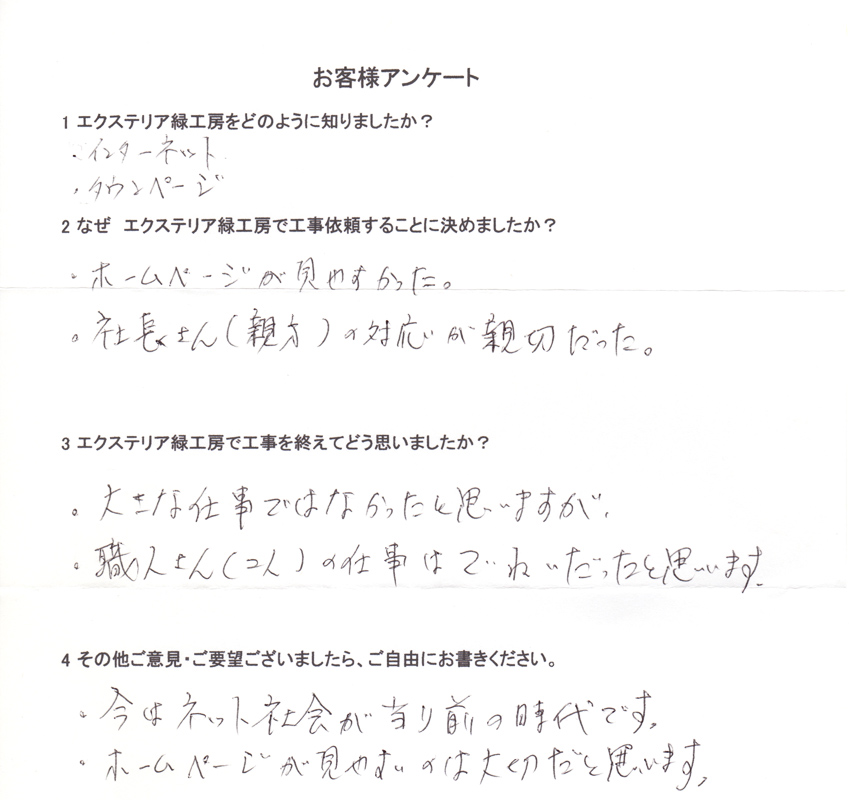 お客様アンケート
1 エクステリア緑工房をどのように知りましたか？
・インターネット
・タウンページ
2 なぜ エクステリア緑工房で工事依頼することに決めましたか？
・ホームページが見やすかった。
・社長さん(親方)の対応が親切だった。
3 エクステリア緑工房で工事を終えてどう思いましたか？
・大きな仕事ではなかったと思いますが、
・職人さん(2人)の仕事はていねいだったと思います。
4 その他ご意見・ご要望ございましたら、ご自由にお書きください。
・今はネット社会が当り前の時代です。
・ホームページが見やすいのは大切だと思います。